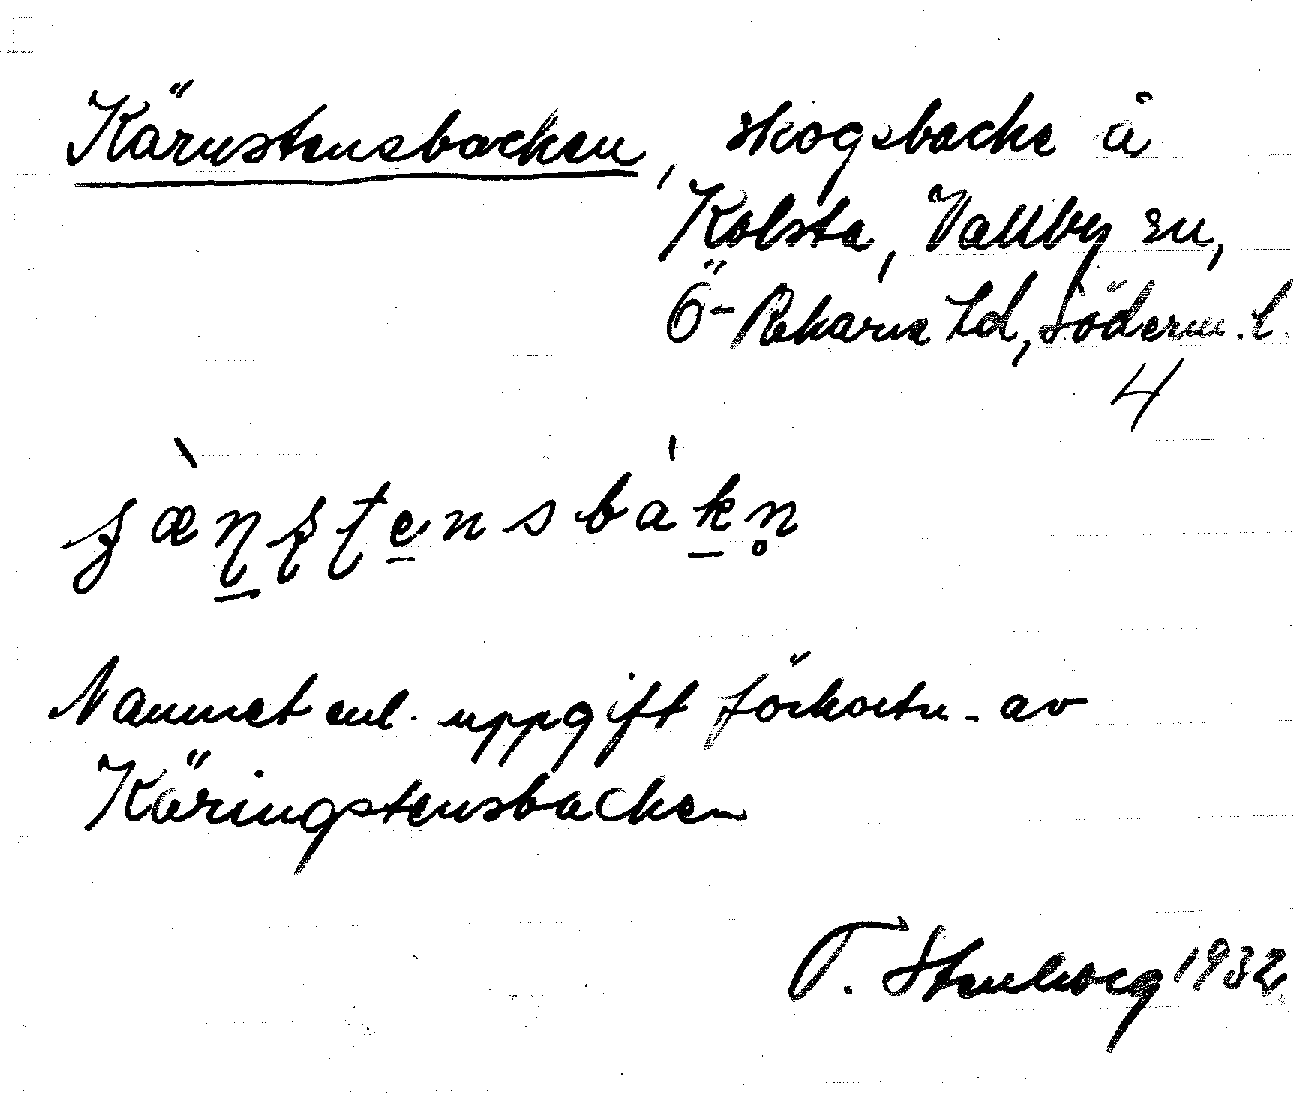 Kärnstensbacken, skogsbacke å
Kolsta, Vallby sn,
Ö-Rekarne hd, Söderm. l.
4
Namnet enl. uppgift förkortn. av
Käringstensbacken
T. Stenborg 1932